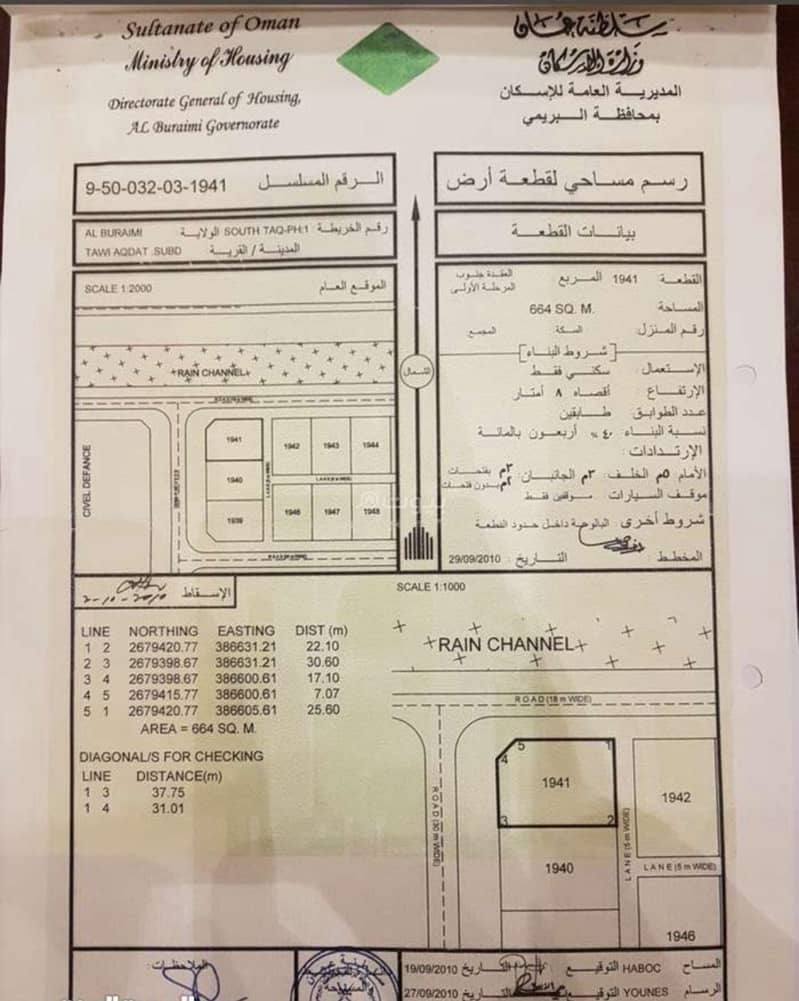 Sultanate of Oman
Ministry of Housing
Directorate General of Housing,
AL Buraimi Governorate
سلطنة عمان
وزارة الإسكان
المديرية العامة للإسكان
بمحافظة البريمي
رسم مساحي لقطعة أرض
الرقم المسلسل 9-50-032-03-1941
بيانات القطعة
رقم الخريطة: SOUTH TAQ-PH:1 الولاية AL BURAIMI
المدينة / القرية TAWI AQDAT .SUBD
القطعة 1941 المربع العقدة جنوب المرحلة الأولى
المساحة 664 SQ. M.
رقم المنزل: السكة: المجمع
شروط البناء
الإستعمال: سكني فقط
الإرتفاع: أقصاه ٨ أمتار
عدد الطوابق: طابقين
نسبة البناء ٤٠% أربعون بالمائة
الإرتدادات:
الأمام ٥م الخلف: ٣م الجانبان: ٣م بفتحات ٢م بدون فتحات
موقف السيارات: موقفين فقط
شروط أخرى: البالوعة داخل حدود القطعة
المخطط: التاريخ: 29/09/2010
الشمال
SCALE 1:2000 الموقع العام
RAIN CHANNEL
CIVEL DEFANCE
1941
1942
1943
1944
1940
1939
1946
1947
1948
الإسقاط
SCALE 1:1000
LINE NORTHING EASTING DIST (m)
1 2 2679420.77 386631.21 22.10
2 3 2679398.67 386631.21 30.60
3 4 2679398.67 386600.61 17.10
4 5 2679415.77 386600.61 7.07
5 1 2679420.77 386605.61 25.60
AREA = 664 SQ. M.
DIAGONAL/S FOR CHECKING
LINE DISTANCE(m)
1 3 37.75
1 4 31.01
RAIN CHANNEL
ROAD (18 m WIDE)
5
1
4
1941
3
2
1942
ROAD (30 m WIDE)
LANE (5 m WIDE)
LANE (5 m WIDE)
1940
1946
الملاحظات:
المساح HABOC التوقيع التاريخ 19/09/2010
الرسام YOUNES التوقيع التاريخ 27/09/2010